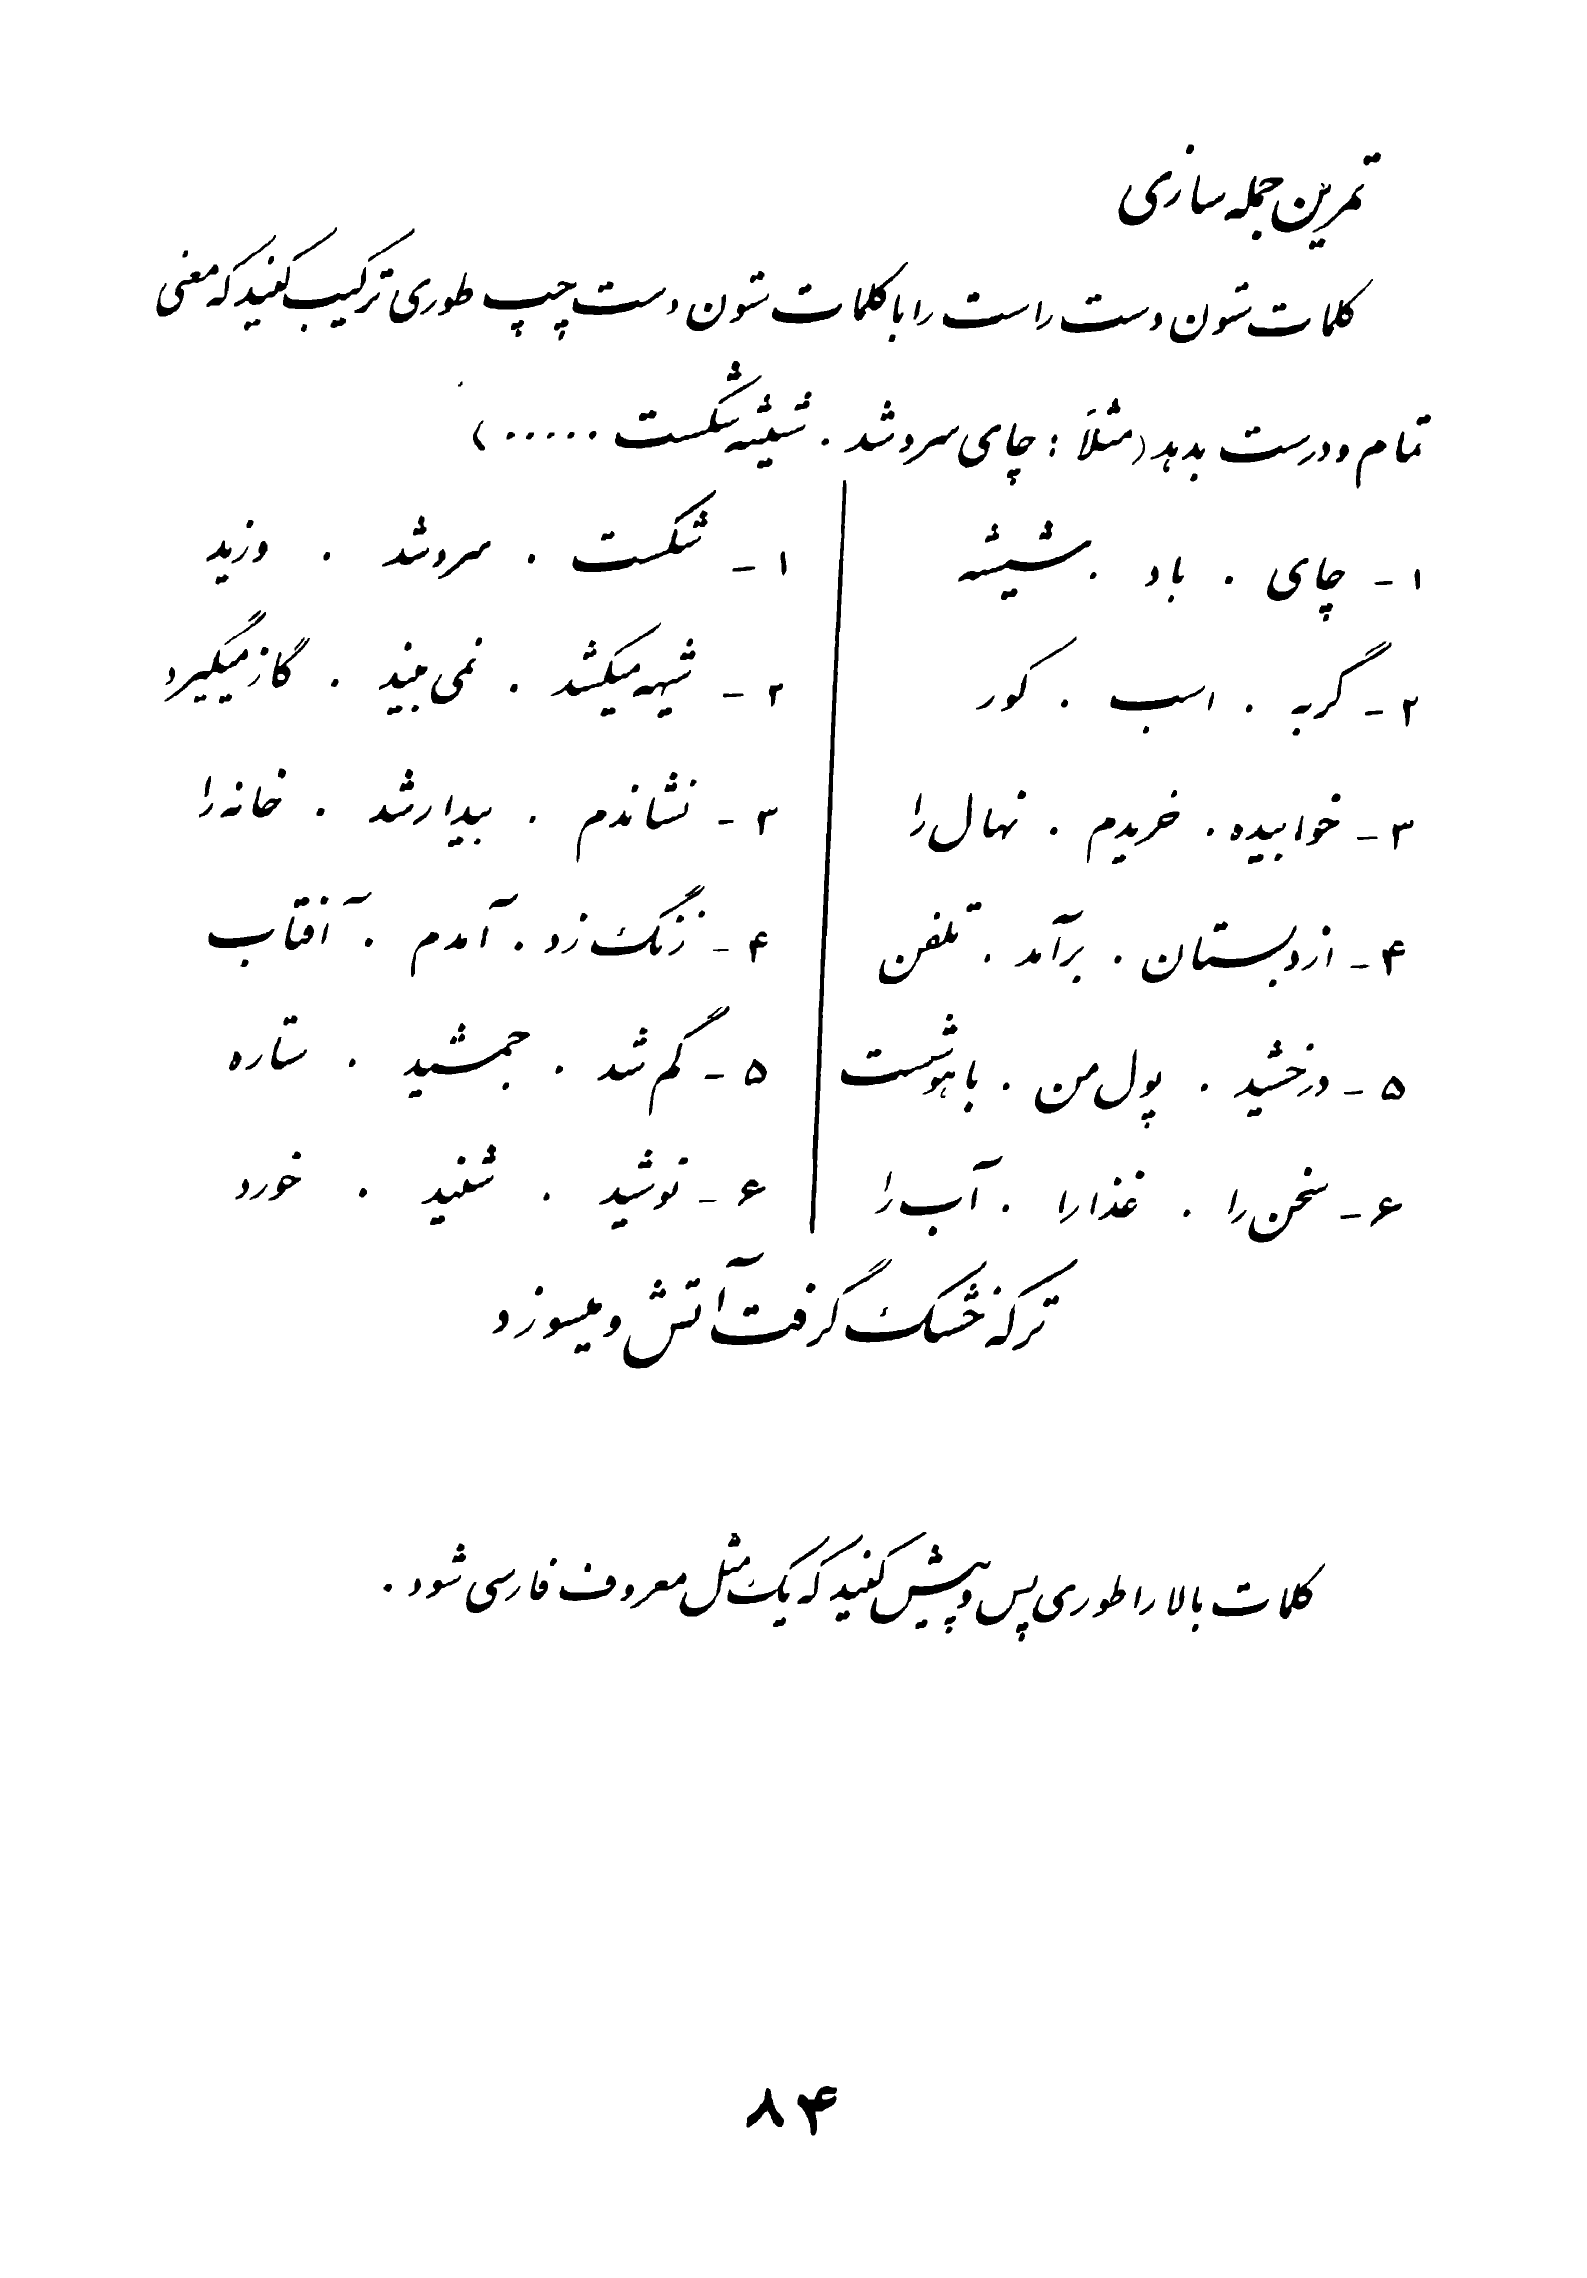 تمرین جمله سازی
کلمات ستون دست راست را با کلمات ستون دست چپ طوری ترکیب کنید که معنی
تمام و درست بدهد (مثلاً : چای سرد شد . شیشه شکست . . . . . )
۱ - چای . باد . شیشه
۱ - شکست . سرد شد . وزید
۲ - گربه . اسب . کور
۲ - شیهه میکشد . نمی بیند . گاز میگیرد
۳ - خوابیده . خریدم . نهال را
۳ - نشاندم . بیدار شد . خانه را
۴ - از دبستان . برآمد . تلفن
۴ - زنگ زد . آمدم . آفتاب
۵ - درخشید . پول من . باهوشست
۵ - گم شد . جمشید . ستاره
۶ - سخن را . غذا را . آب را
۶ - نوشید . شنید . خورد
تر که خشک گرفت آتش و میسوزد
کلمات بالا را طوری پس و پیش کنید که یک مثل معروف فارسی شود .
۸۴